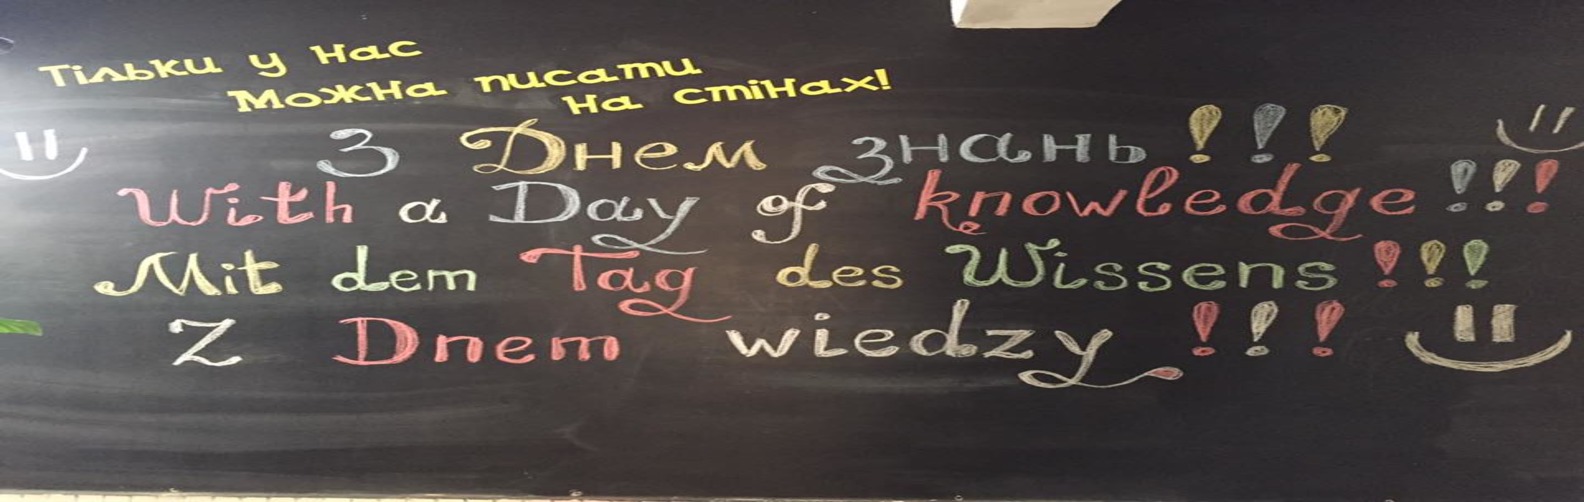 Тільки у нас
можна писати
на стінах!
З Днем знань!!!
With a Day of knowledge!!!
Mit dem Tag des Wissens!!!
Z Dnem wiedzy!!!